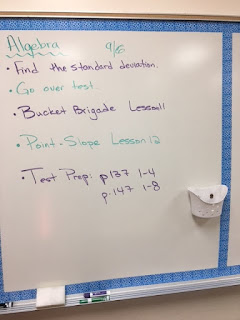 Algebra 9/26
• Find the standard deviation.
• Go over test.
• Bucket Brigade Lesson 11
• Point-Slope Lesson 12
• Test Prep: p137 1-4
p.147 1-8